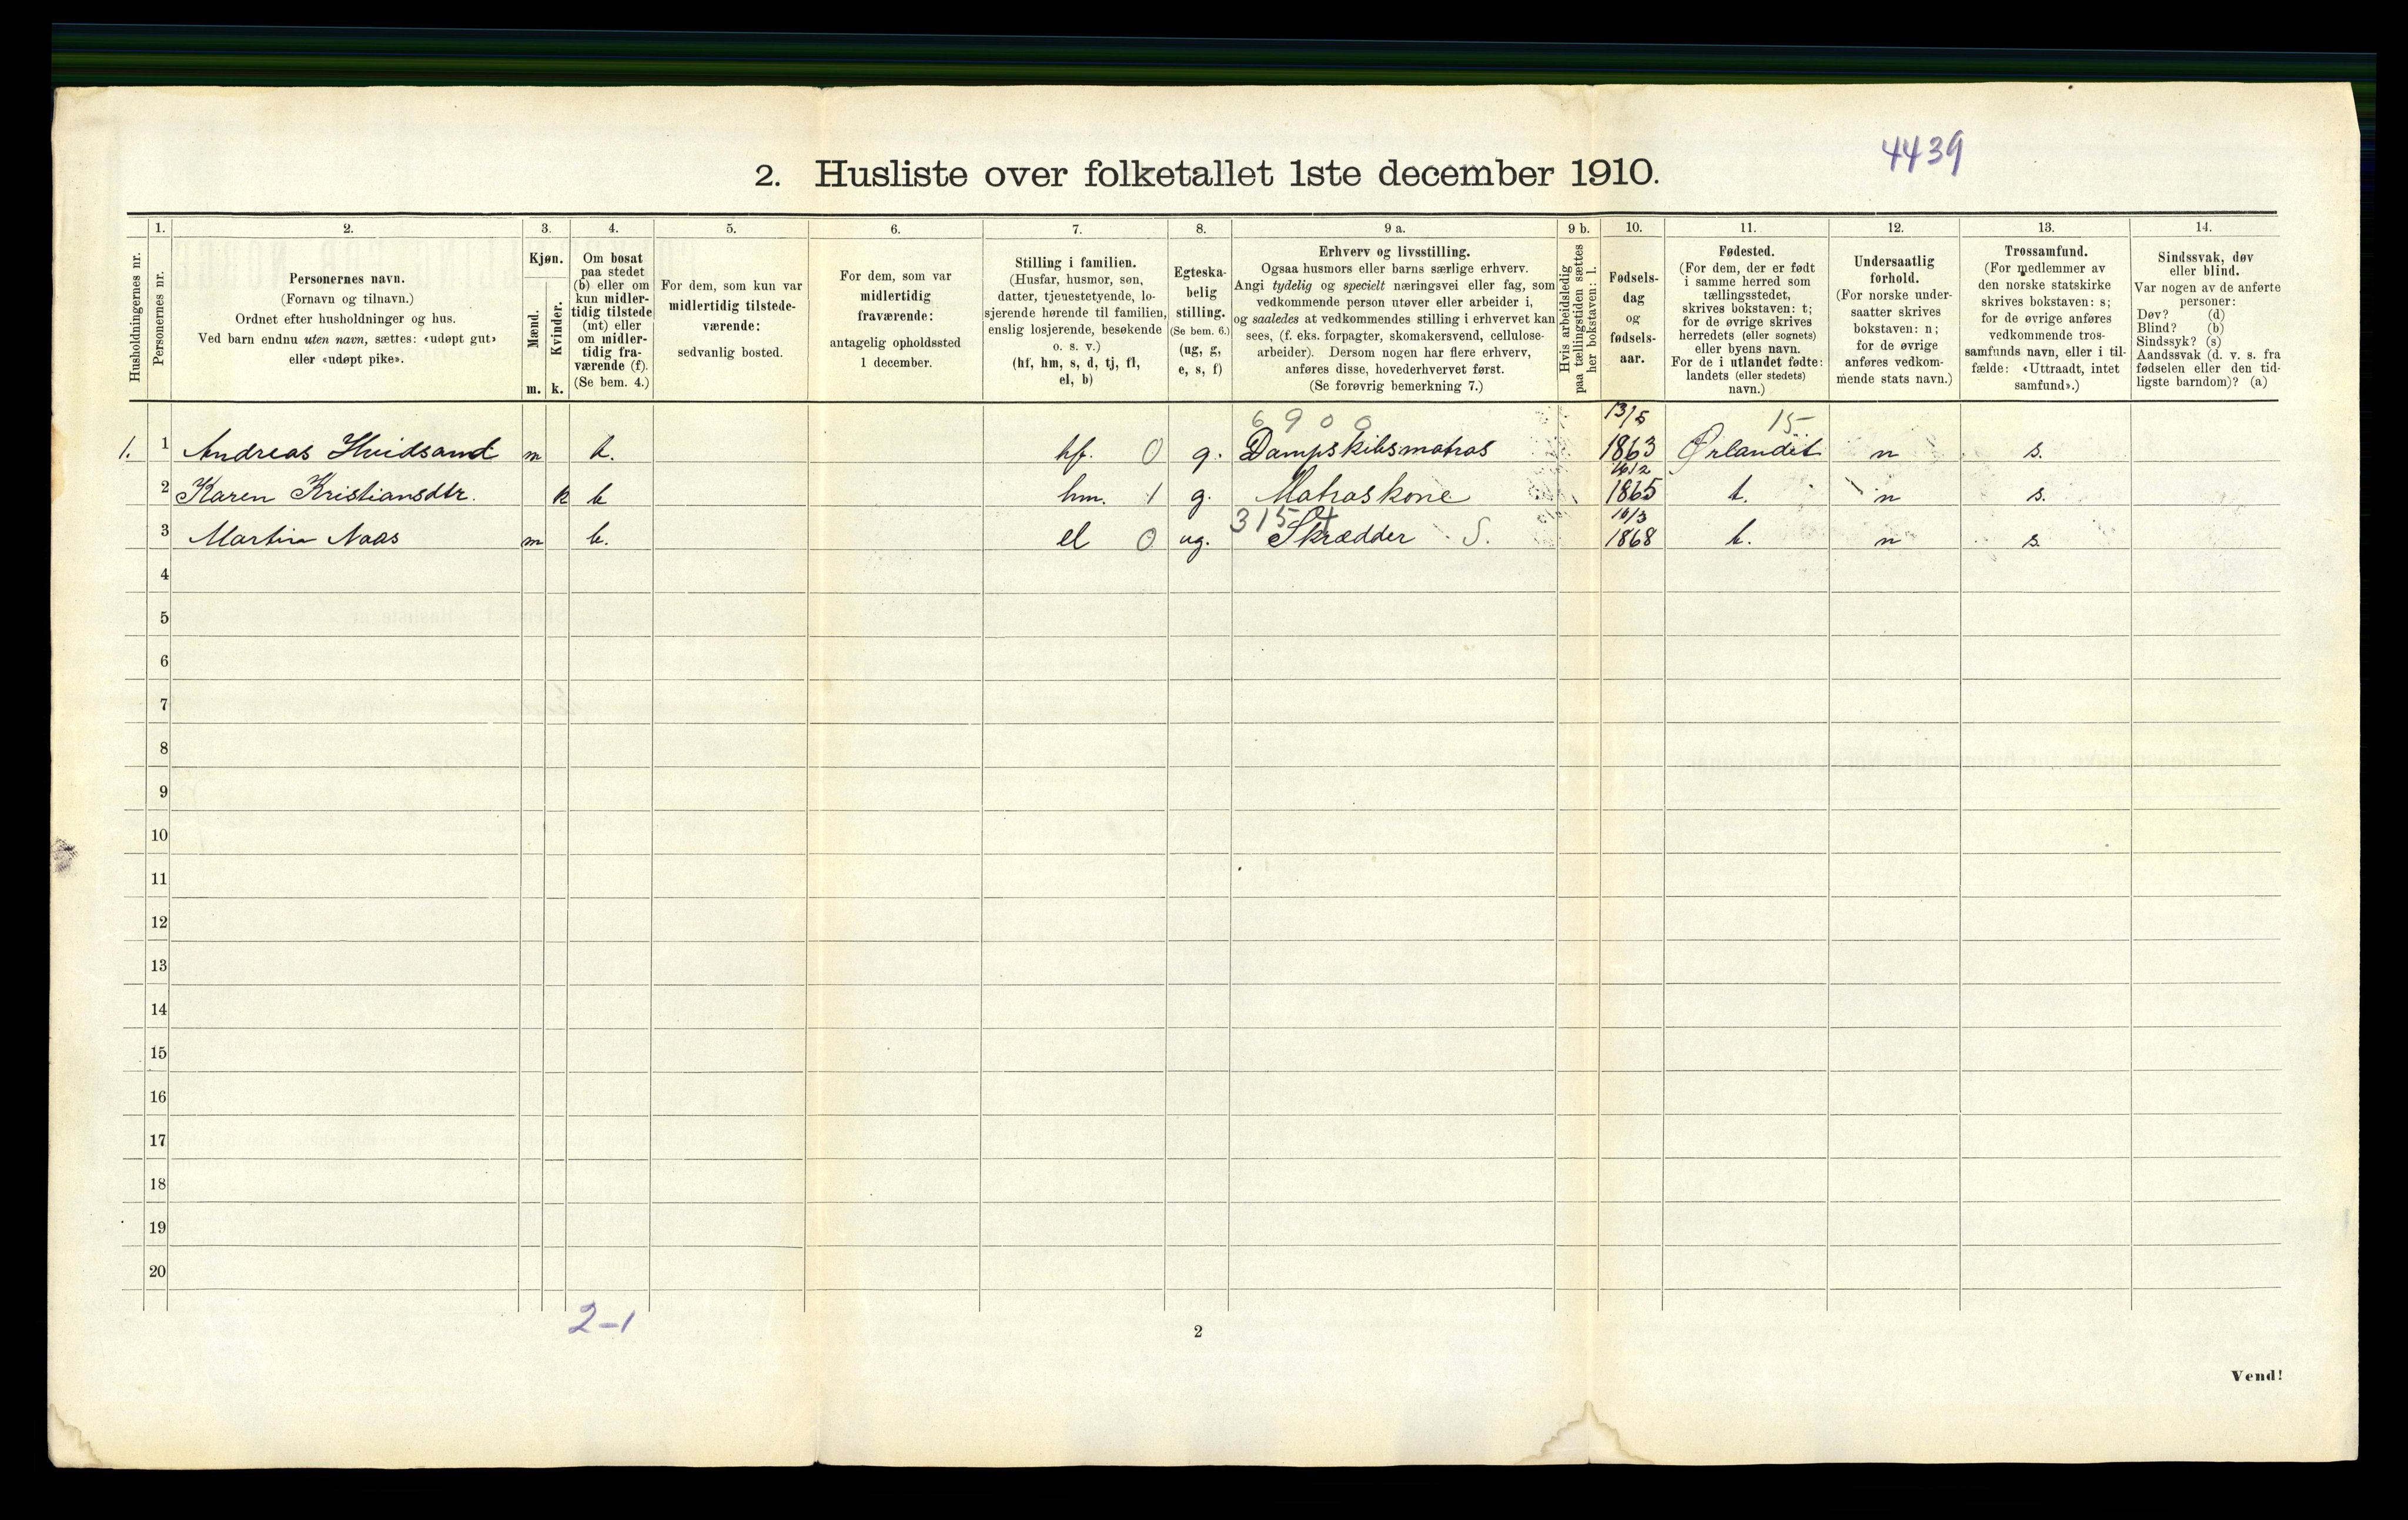 4439
2. Husliste over folketallet 1ste december 1910.
Husholdningernes nr.
1.
Personernes nr.
2.
Personernes navn.
(Fornavn og tilnavn.)
Ordnet efter husholdninger og hus.
Ved barn endnu uten navn, sættes: «udøpt gut»
eller «udøpt pike».
3.
Kjøn.
Mænd.
m.
Kvinder.
k.
4.
Om bosat
paa stedet
(b) eller om
kun midler-
tidig tilstede
(mt) eller
om midler-
tidig fra-
værende (f).
(Se bem. 4.)
5.
For dem, som kun var
midlertidig tilstede-
værende:
sedvanlig bosted.
6.
For dem, som var
midlertidig
fraværende:
antagelig opholdssted
1 december.
7.
Stilling i familien.
(Husfar, husmor, søn,
datter, tjenestetyende, lo-
sjerende hørende til familien,
enslig losjerende, besøkende
o. s. v.)
(hf, hm, s, d, tj, fl,
el, b)
8.
Egteska-
belig
stilling.
(Se bem. 6.)
(ug, g,
e, s, f)
9 a.
Erhverv og livsstilling.
Ogsaa husmors eller barns særlige erhverv.
Angi tydelig og specielt næringsvei eller fag, som
vedkommende person utøver eller arbeider i,
og saaledes at vedkommendes stilling i erhvervet kan
sees, (f. eks. forpagter, skomakersvend, cellulose-
arbeider). Dersom nogen har flere erhverv,
anføres disse, hovederhvervet først.
(Se forøvrig bemerkning 7.)
9 b.
Hvis arbeidsledig
paa tællingstiden sættes
her bokstaven: l.
10.
Fødsels-
dag
og
fødsels-
aar.
11.
Fødested.
(For dem, der er født
i samme herred som
tællingsstedet,
skrives bokstaven: t;
for de øvrige skrives
herredets (eller sognets)
eller byens navn.
For de i utlandet fødte:
landets (eller stedets)
navn.)
12.
Undersaatlig
forhold.
(For norske under-
saatter skrives
bokstaven: n;
for de øvrige
anføres vedkom-
mende stats navn.)
13.
Trossamfund.
(For medlemmer av
den norske statskirke
skrives bokstaven: s;
for de øvrige anføres
vedkommende tros-
samfunds navn, eller i til-
fælde: «Uttraadt, intet
samfund».)
14.
Sindssvak, døv
eller blind.
Var nogen av de anførte
personer:
Døv? (d)
Blind? (b)
Sindssyk? (s)
Aandssvak (d. v. s. fra
fødselen eller den tid-
ligste barndom)? (a)
6900 13/5 15
1. 1 Andreas Hvidsand m b. hf. 0 g. Dampskibsmatros 1863 Ørlandet n s.
2 Karen Kristiansdtr. k b hm. 1 g. Matroskone 1865 t. n s.
315 16/3
3 Martin Naas m b. el 0 ug. Skrædder S. 1868 t. n s.
4
5
6
7
8
9
10
11
12
13
14
15
16
17
18
19
20
2-1
2
Vend!